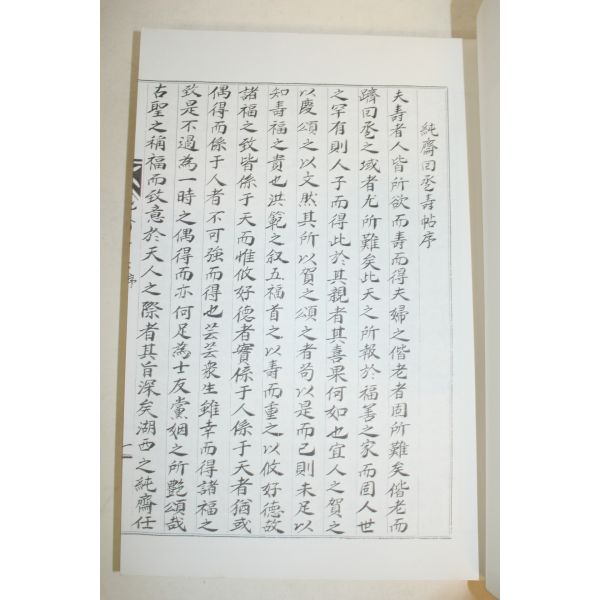 純齋回巹壽帖序
夫壽者人皆所欲而壽而得夫婦之偕老者固所難矣偕老而
躋回巹之域者尤所難矣此天之所報於福善之家而固人世
之罕有則人子而得此於其親者其喜果何如也宜人之賀之
以慶頌之以文然其所以賀之頌之者苟以是而已則未足以
知壽福之貴也洪範之叙五福首之以壽而重之以攸好德故
諸福之致皆係于天而惟攸好德者實係于人係于天者猶或
偶得而係于人者不可強而得也芸芸衆生雖幸而得諸福之
致是不過為一時之偶得而亦何足為士友黨姻之所艶頌哉
古聖之稱福而致意於天人之際者其旨深矣湖西之純齋任
序
一